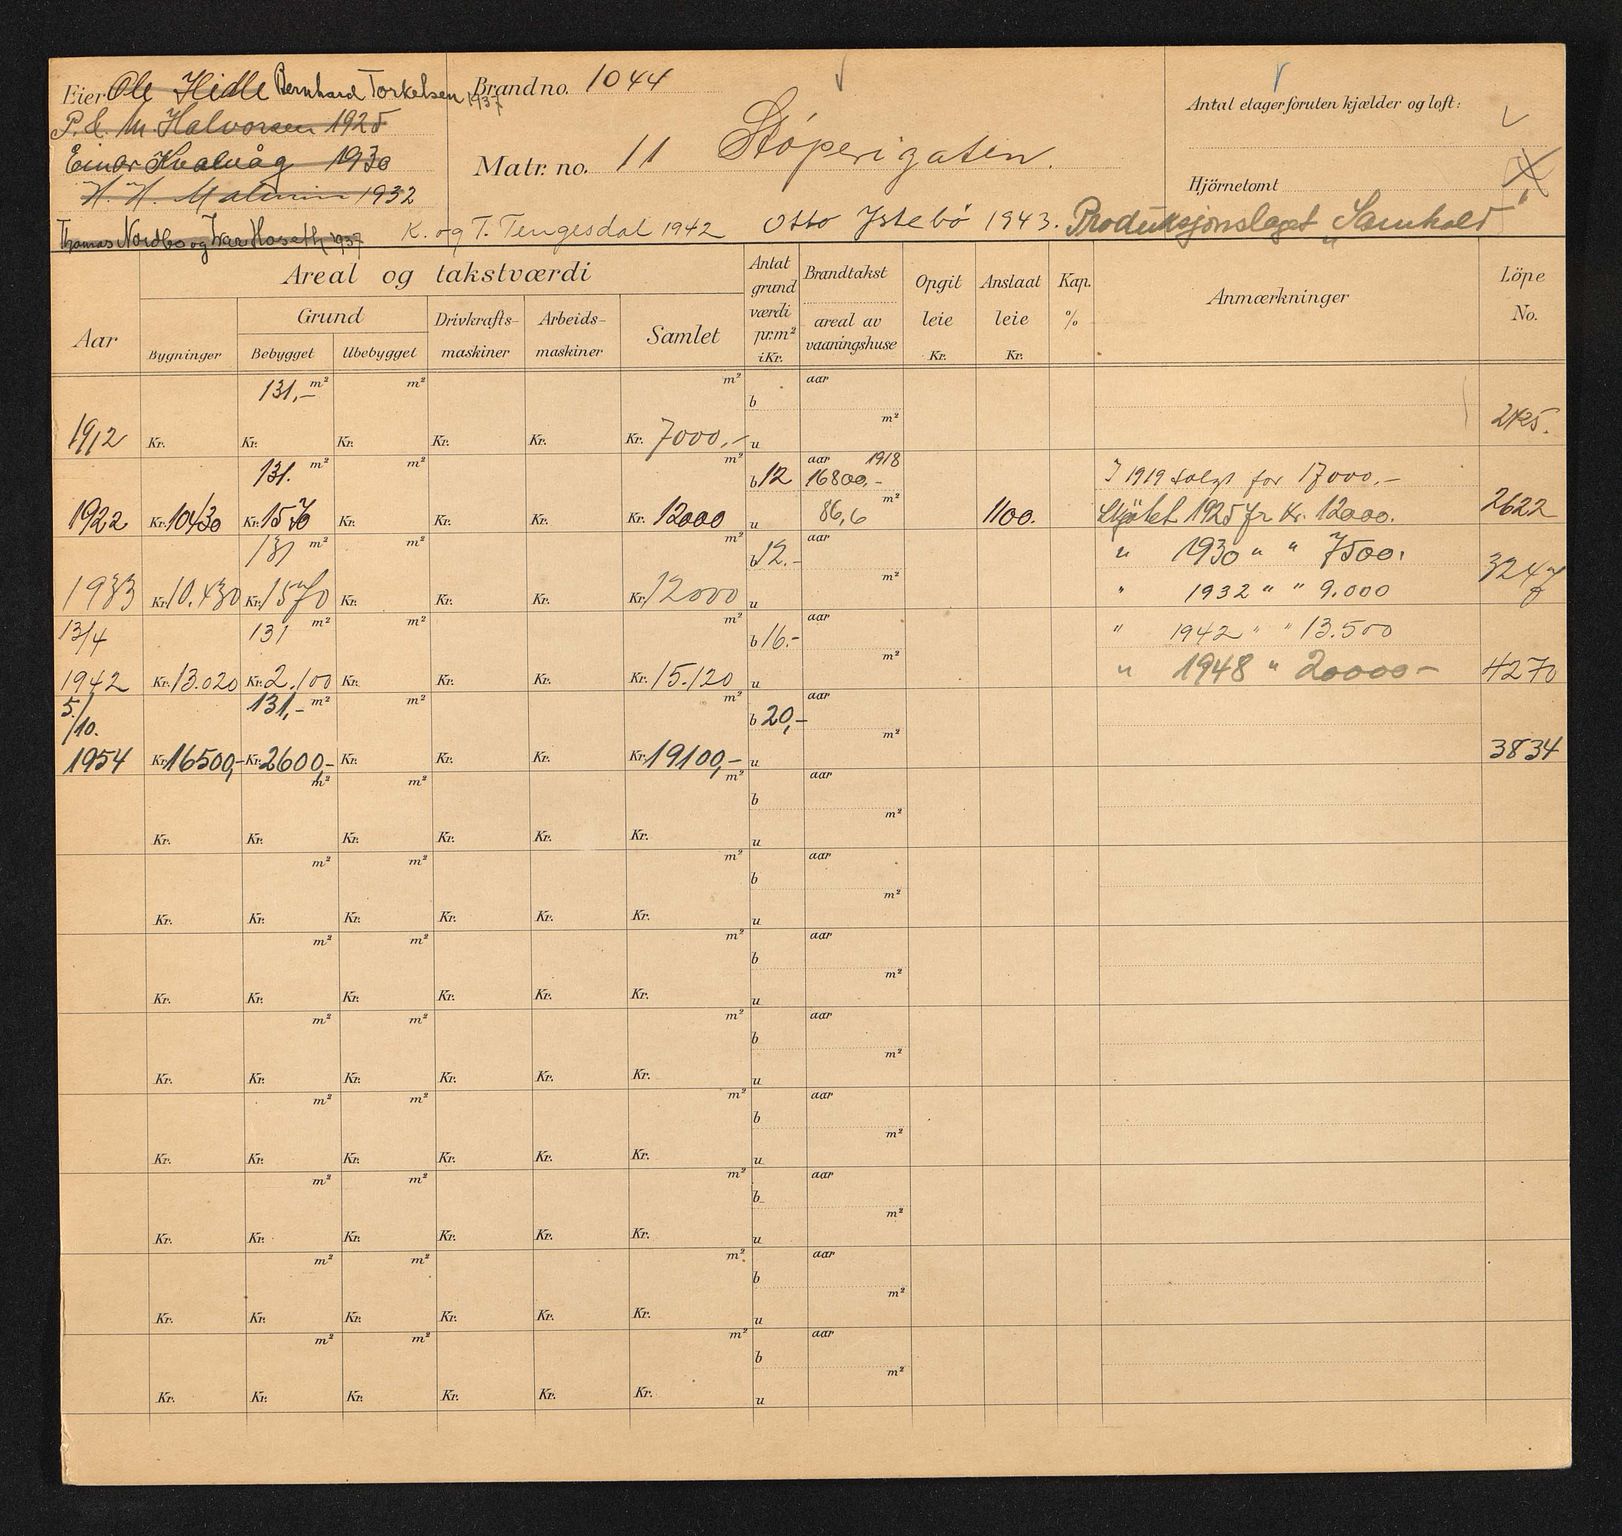 Eier Ole Hidle Bernhard Torkelsen 1937
P. E. M. Halvorsen 1925
Einar Kvalvåg 1930
H. H. Malmin 1932
Thomas Nordbo og Ivar Hoseth 1937
K. og T. Tengesdal 1942 Otto Ystebö 1943. Produksjonslaget "Samhold"
Brand no. 1044
Matr. no. 11 Støperigaten.
Antal etager foruten kjælder og loft:
Hjörnetomt
Aar
Areal og takstværdi
Bygninger
Grund
Bebygget Ubebygget
Drivkrafts-maskiner
Arbeids-maskiner
Samlet
Antat grund værdi pr. m² i Kr.
Brandtakst
areal av vaaningshuse
Opgit leie Kr.
Anslaat leie Kr.
Kap. %
Anmærkninger
Löpe No.
131,- m² m² m² aar
b
m²
1912 Kr. Kr. Kr. Kr. Kr. Kr. 7000,- u 2425.
131. m² m² m² b 12 aar 1918
16800,- I 1919 solgt for 17000,-
m²
1922 Kr. 10430 Kr. 1570 Kr. Kr. Kr. Kr. 12000 u 86,6 1100. Skjötet 1925 fr Kr. 12000. 2622
131 m² m² m² b 12.- aar " 1930 " " 7500.
m²
1933 Kr. 10.430 Kr. 1570 Kr. Kr. Kr. Kr. 12000 u " 1932 " " 9.000 3247
13/4 131 m² m² m² b 16.- aar " 1942 " " 13.500
m²
1942 Kr. 13.020 Kr. 2.100 Kr. Kr. Kr. Kr. 15.120 u " 1948 " 20000- 4270
5./10. 131,- m² m² m² b 20,- aar
m²
1954 Kr. 16500,- Kr. 2600,- Kr. Kr. Kr. Kr. 19100,- u 3834
m² m² m² aar
b
m²
Kr. Kr. Kr. Kr. Kr. Kr. u
m² m² m² aar
b
m²
Kr. Kr. Kr. Kr. Kr. Kr. u
m² m² m² aar
b
m²
Kr. Kr. Kr. Kr. Kr. Kr. u
m² m² m² aar
b
m²
Kr. Kr. Kr. Kr. Kr. Kr. u
m² m² m² aar
b
m²
Kr. Kr. Kr. Kr. Kr. Kr. u
m² m² m² aar
b
m²
Kr. Kr. Kr. Kr. Kr. Kr. u
m² m² m² aar
b
m²
Kr. Kr. Kr. Kr. Kr. Kr. u
m² m² m² aar
b
m²
Kr. Kr. Kr. Kr. Kr. Kr. u